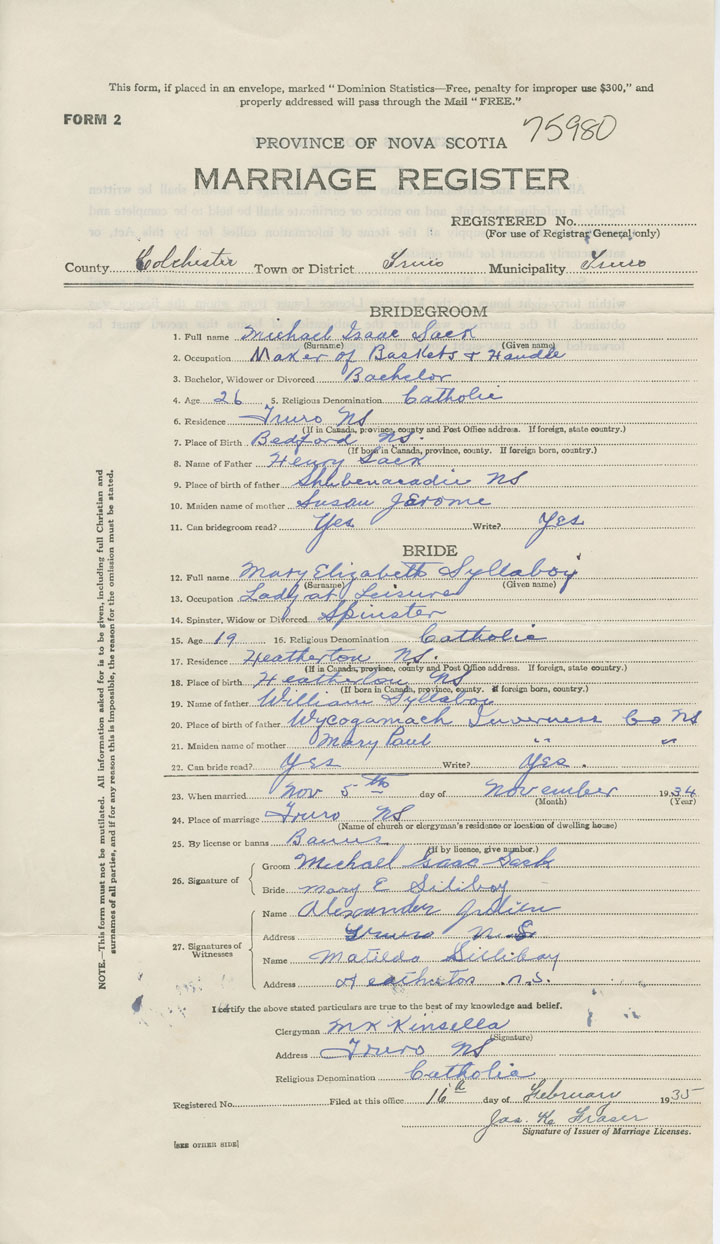 This form, if placed in an envelope, marked " Dominion Statistics—Free, penalty for improper use $300," and
properly addressed will pass through the Mail " FREE."
FORM 2
75980
PROVINCE OF NOVA SCOTIA
MARRIAGE REGISTER
REGISTERED No.
(For use of Registrar General only)
County Colchester Town or District Truro Municipality Truro
BRIDEGROOM
1. Full name Michael Isaac Sack
(Surname) (Given name)
2. Occupation Maker of Baskets & Handle
3. Bachelor, Widower or Divorced Bachelor
4. Age 26 5. Religious Denomination Catholic
6. Residence Truro NS
(If in Canada, province, county and Post Office address. If foreign, state country.)
7. Place of Birth Bedford NS.
(If born in Canada, province, county. If foreign born, country.)
8. Name of Father Henry Sack
9. Place of birth of father Shubenacadie NS
10. Maiden name of mother Susan Jerome
11. Can bridegroom read? Yes Write? Yes
BRIDE
12. Full name Mary Elizabeth Syllaboy
(Surname) (Given name)
13. Occupation Lady at Leisure
14. Spinster, Widow or Divorced Spinster
15. Age 19 16. Religious Denomination Catholic
17. Residence Heatherton NS.
(If in Canada, province, county and Post Office address. If foreign, state country.)
18. Place of birth Heatherton NS
(If born in Canada, province, county. If foreign born, country.)
19. Name of father William Syllaboy
20. Place of birth of father Wycogamach Inverness Co NS
21. Maiden name of mother Mary Paul " "
22. Can bride read? Yes Write? Yes.
23. When married Nov 5th day of November 1934
(Month) (Year)
24. Place of marriage Truro NS
(Name of church or clergyman's residence or location of dwelling house)
25. By license or banns Banns
(If by licence, give number.)
26. Signature of
Groom Michael Isaac Sack
Bride Mary E Siliboy
27. Signatures of Witnesses
Name Alexander Julien
Address Truro N.S
Name Matilda Sillibay
Address Heatherton N.S.
I certify the above stated particulars are true to the best of my knowledge and belief.
Clergyman MK Kinsella
(Signature)
Address Truro NS
Religious Denomination Catholic
Registered No. Filed at this office 16th day of February 1935
Jas. K. Fraser
Signature of Issuer of Marriage Licenses.
[SEE OTHER SIDE]
NOTE.—This form must not be mutilated. All information asked for is to be given, including full Christian and
surnames of all parties, and if for any reason this is impossible, the reason for the omission must be stated.